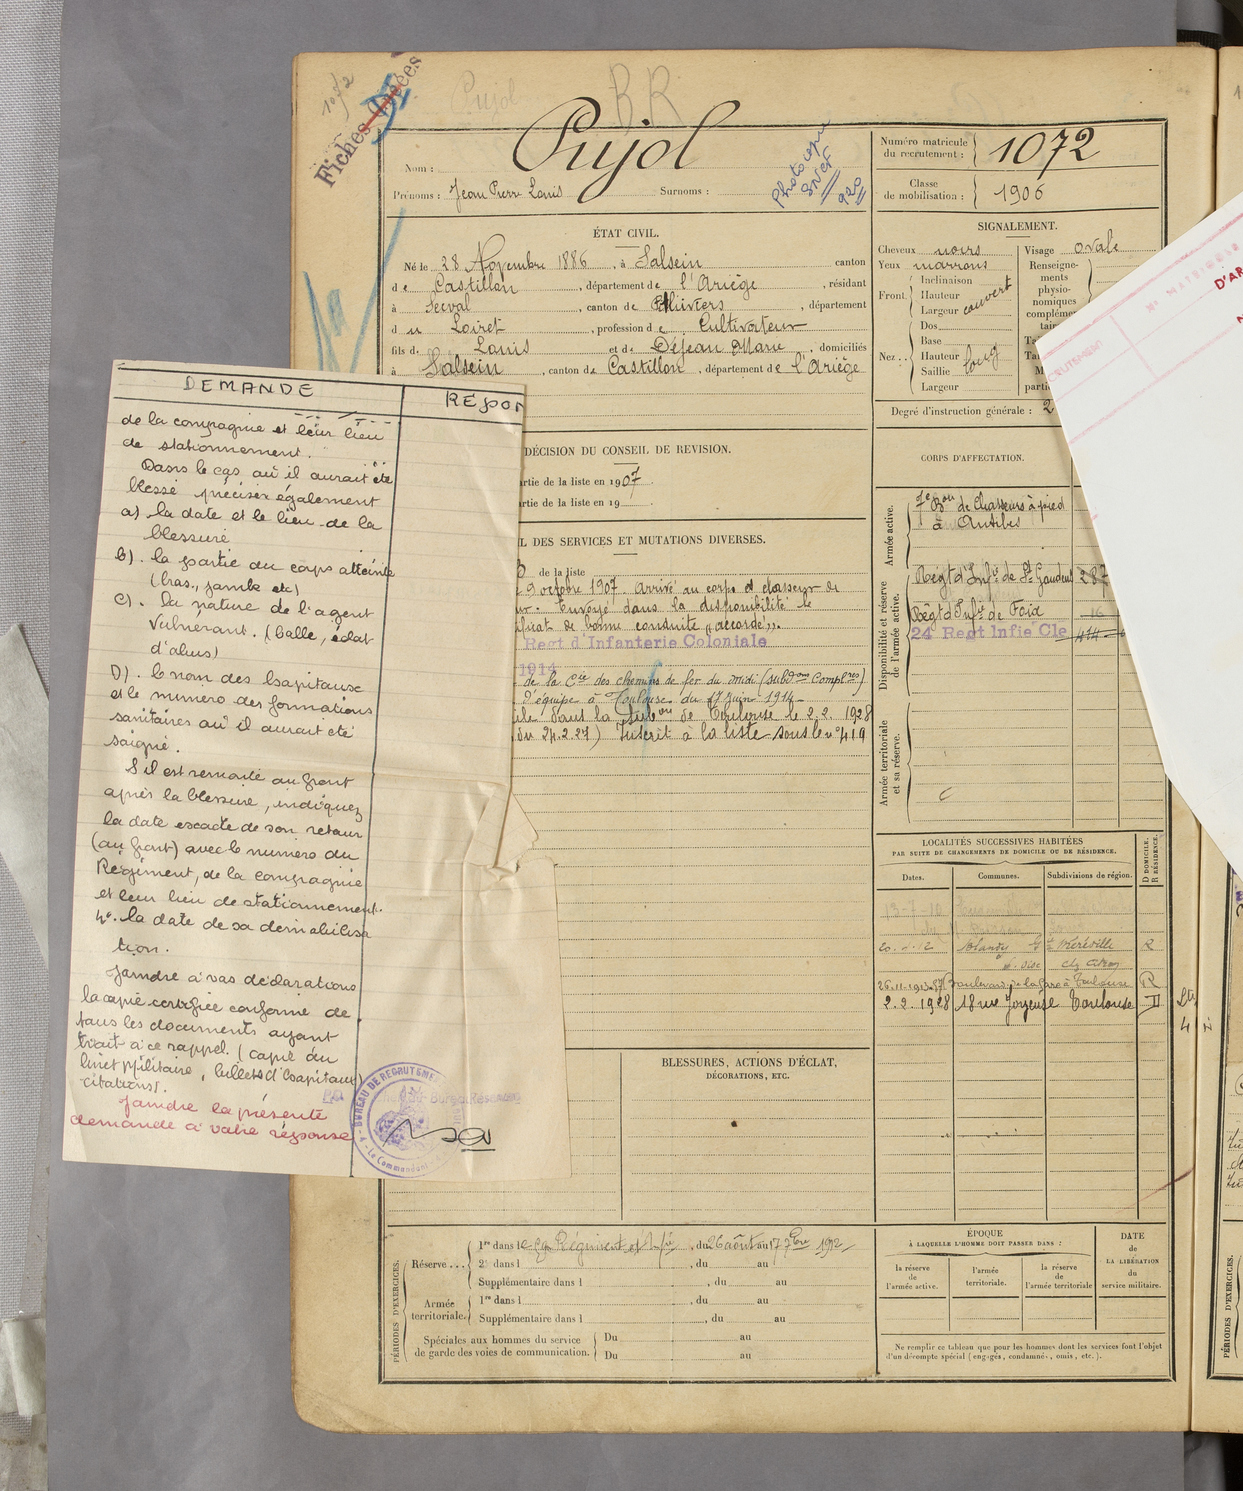 Fiches
Pujol
RR
Nom :
Pujol
Prénoms : Jean Pierre Louis Surnoms :
Photocopie
SNCF
920
Numéro matricule
du recrutement : 1072
Classe
de mobilisation : 1906
ÉTAT CIVIL.
Né le 28 Novembre 1886, à Salsein canton
de Castillon, département de l'Ariège, résidant
à Serval, canton de Pithiviers, département
du Loiret, profession de Cultivateur
fils de Louis et de Dejean Marie, domiciliés
à Salsein, canton de Castillon, département de l'Ariège
SIGNALEMENT.
Cheveux noirs
Yeux marrons
Front
Inclinaison
Hauteur
Largeur couvert
Nez
Dos
Base
Hauteur long
Saillie
Largeur
Visage ovale
Renseigne-
ments
physio-
nomiques
Degré d'instruction générale : 2
DÉCISION DU CONSEIL DE REVISION.
partie de la liste en 1907
partie de la liste en 19
DES SERVICES ET MUTATIONS DIVERSES.
de la liste
9 octobre 1907. Arrivé au corps et chasseur de
Envoyé dans la disponibilité le
de bonne conduite "accordé".
Regt d'Infanterie Coloniale
1914
de la Cie des chemins de fer du midi (subdons complres)
d'équipe à Toulouse du 17 juin 1914
dans la Subon de Toulouse le 2.2.1928
du 24.2.27) Inscrit à la liste sous le n° 419
CORPS D'AFFECTATION.
Armée active.
7e Bon de Chasseurs à pied
à Antibes
Disponibilité et réserve
de l'armée active.
Régt d'Infie de St Gaudens 287
Régt d'Infie de Foix 16
24 Regt Infie Cle
Armée territoriale
et sa réserve.
LOCALITÉS SUCCESSIVES HABITÉES
PAR SUITE DE CHANGEMENTS DE DOMICILE OU DE RÉSIDENCE.
Dates. Communes. Subdivisions de région.
D DOMICILE.
R RÉSIDENCE.
13-7-10
Méréville R
26.11.1913 Boulevard de la Gare à Toulouse R
2.2.1928 18 rue Joyeuse Toulouse D
BLESSURES, ACTIONS D'ÉCLAT,
DÉCORATIONS, ETC.
PÉRIODES D'EXERCICES.
Réserve... 1re dans le Régiment , du 26 août au 17 7bre 192
2e dans l , du au
Supplémentaire dans l , du au
Armée
territoriale. 1re dans l , du au
Supplémentaire dans l , du au
Spéciales aux hommes du service
de garde des voies de communication. Du au
Du au
ÉPOQUE
À LAQUELLE L'HOMME DOIT PASSER DANS :
la réserve
de
l'armée active.
l'armée
territoriale.
la réserve
de
l'armée territoriale
DATE
de
LA LIBÉRATION
du
service militaire.
Ne remplir ce tableau que pour les hommes dont les services font l'objet
d'un décompte spécial (engagés, condamnés, omis, etc.).
DEMANDE
REPON
de la compagnie et leur lieu
de stationnement.
Dans le cas où il aurait été
blessé préciser également
a) la date et le lieu de la
blessure
b). la partie du corps atteinte
(bras, jambe etc)
c). la nature de l'agent
vulnérant. (balle, éclat
d'abus)
D). le nom des hopitaux
et le numéro des formations
sanitaires où il aurait été
soigné.
S'il est remonté au front
après la blessure, indiquez
la date exacte de son retour
(au front) avec le numéro du
Régiment, de la compagnie
et leur lieu de stationnement.
4°. la date de sa démobilisa
tion.
Joindre à vos déclarations
la copie certifiée conforme de
tous les documents ayant
trait à ce rappel. (copie du
livret Militaire, bullets d'hopitaux)
citations).
Joindre la présente
demande à votre réponse
BUREAU DE RECRUTEMENT
Le Commandant
PÉRIODES D'EXERCICES.